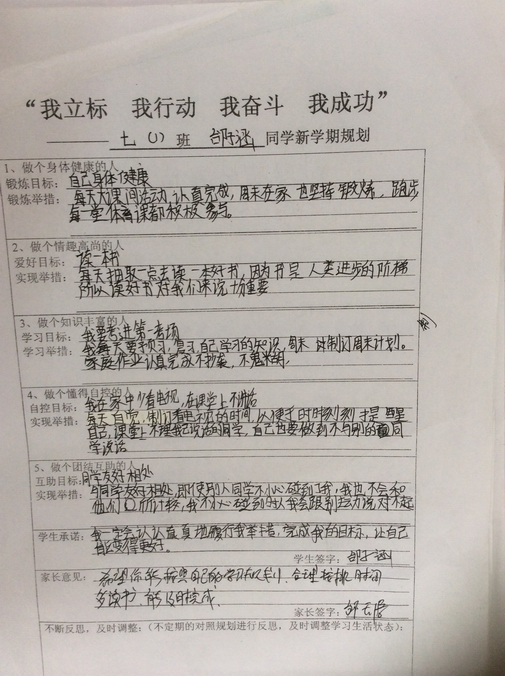 “我立标 我行动 我奋斗 我成功”
七（1）班 邵子涵 同学新学期规划
1、做个身体健康的人
锻炼目标：自己身体健康
锻炼举措：每天大课间活动认真完成，周末在家也坚持锻炼，跑步
每一堂体育课都积极参与。
2、做个情趣高尚的人
爱好目标：读一本书
实现举措：每天抽取一点去读一本好书，因为书是人类进步的阶梯
所以读好书对我们来说十场重要
3、做个知识丰富的人
学习目标：我要考进第一考场
学习举措：我每天要预习，复习自己学习的知识，周末 制订周末计划。
家庭作业认真完成不抄袭，不
4、做个懂得自控的人
自控目标：我在家中少看电视，在课堂上不讲话
实现举措：每天自觉，制订看电视的时间，以便于时时刻刻
自己，课堂上不理我说话的同学，自己也要做到不与别的同
学说话
5、做个团结互助的人
互助目标：同学友好相处
实现举措：与同学友好相处，即使别人同学不小心碰到我，我也不会和
他们计较，我不小心碰到时认我会跟别主动说对不起
学生承诺：我一定会认认真真地履行我举措，完成我的目标，让自己
能变得更好。
学生签字：邵子涵
家长意见：希望你能 合理安排时间
多读书
家长签字：
不断反思，及时调整：（不定期的对照规划进行反思，及时调整学习生活状态）：